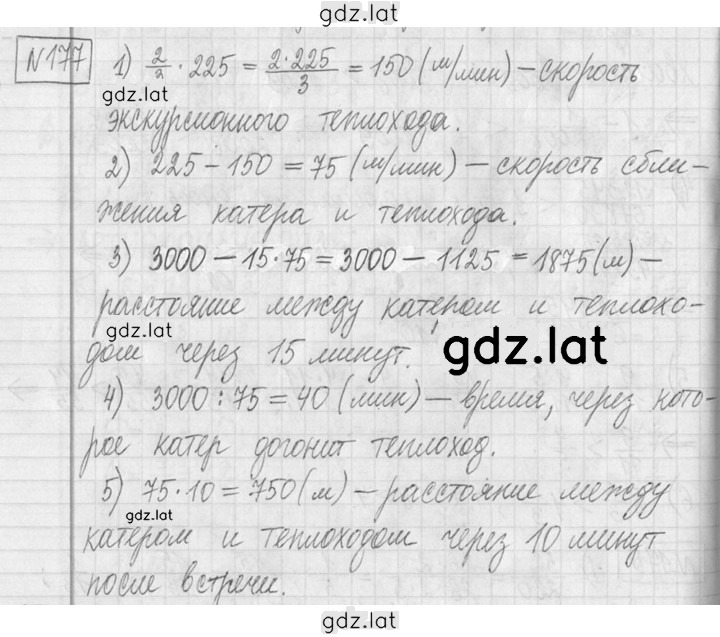 gdz.lat
№177
1) 2/2 · 225 = 2·225/3 = 150 (м/мин) – скорость
gdz.lat
экскурсионного теплохода.
2) 225 – 150 = 75 (м/мин) – скорость сбли-
жения катера и теплохода.
3) 3000 – 15·75 = 3000 – 1125 = 1875 (м) –
расстояние между катером и теплохо-
gdz.lat
дом через 15 минут.
gdz.lat
4) 3000 : 75 = 40 (мин) – время, через кото-
рое катер догонит теплоход.
5) 75·10 = 750 (м) – расстояние между
gdz.lat
катером и теплоходом через 10 минут
после встречи.
gdz.lat